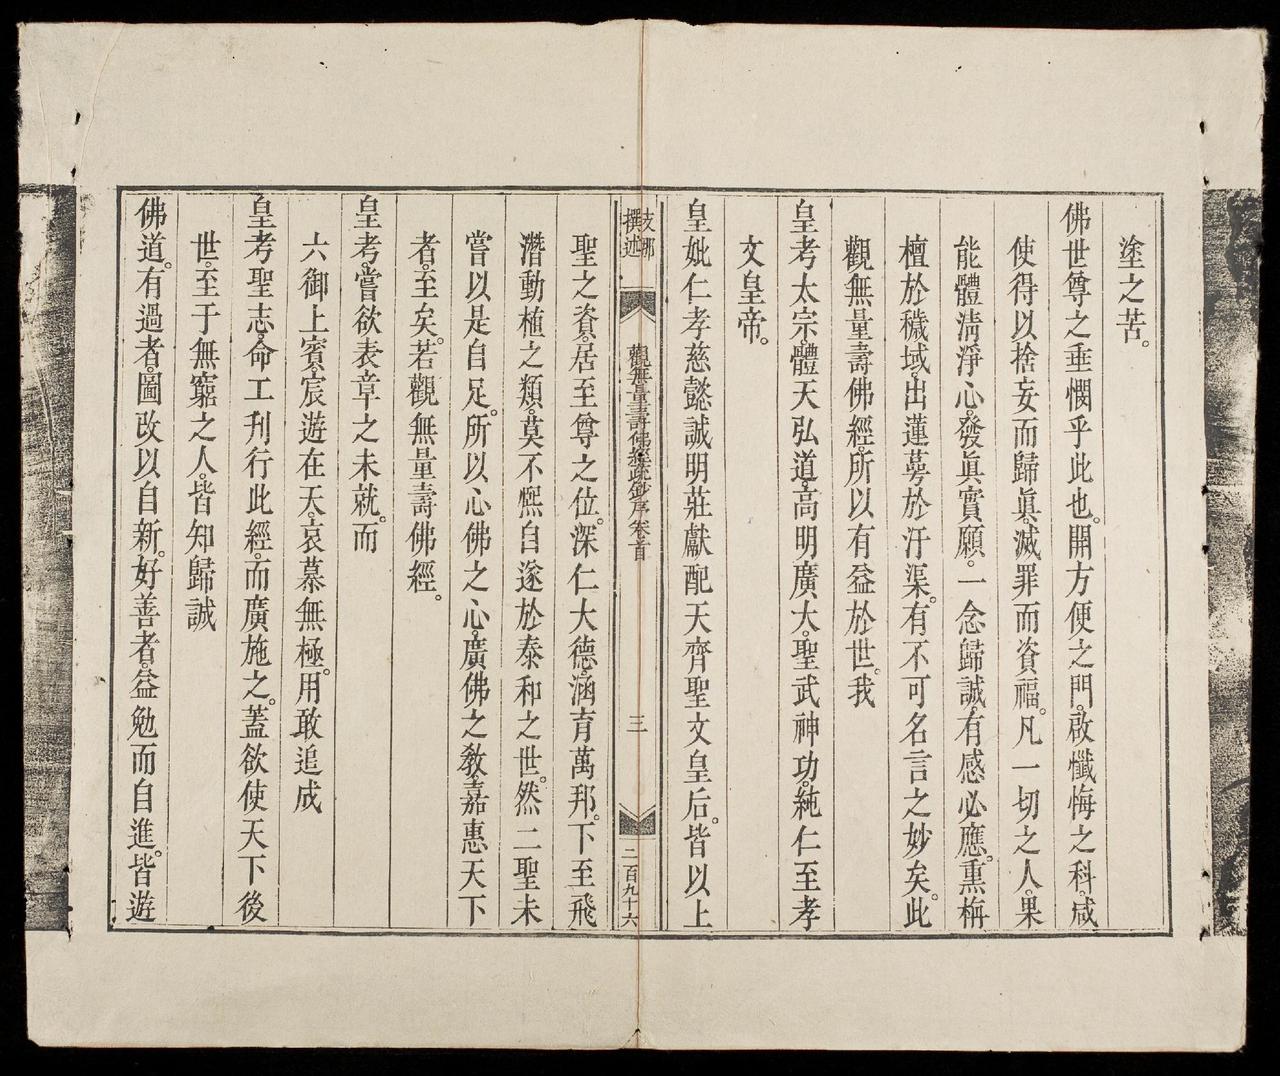 塗之苦。
佛世尊之垂憫乎此也。開方便之門。啟懺悔之科。咸
使得以捨妄而歸眞。滅罪而資福。凡一切之人。果
能體淸淨心。發眞實願。一念歸誠。有感必應。熏栴
檀於穢域。出蓮蕚於汙渠。有不可名言之妙矣。此
觀無量壽佛經。所以有益於世。我
皇考太宗。體天弘道。高明廣大。聖武神功。純仁至孝
文皇帝。
皇妣仁孝慈懿誠明莊獻配天齊聖文皇后。皆以上
支那
撰述
觀無量壽佛經疏鈔序卷首
三
二百九十六
聖之資。居至尊之位。深仁大德。涵育萬邦。下至飛
潛動植之類。莫不熈自遂於泰和之世。然二聖未
嘗以是自足。所以心佛之心。廣佛之敎。嘉惠天下
者。至矣。若觀無量壽佛經。
皇考。嘗欲表章之未就。而
六御上賓。宸遊在天。哀慕無極。用敢追成
皇考聖志。命工刋行此經。而廣施之。蓋欲使天下後
世。至于無窮之人。皆知歸誠
佛道。有過者。圖改以自新。好善者。益勉而自進。皆遊